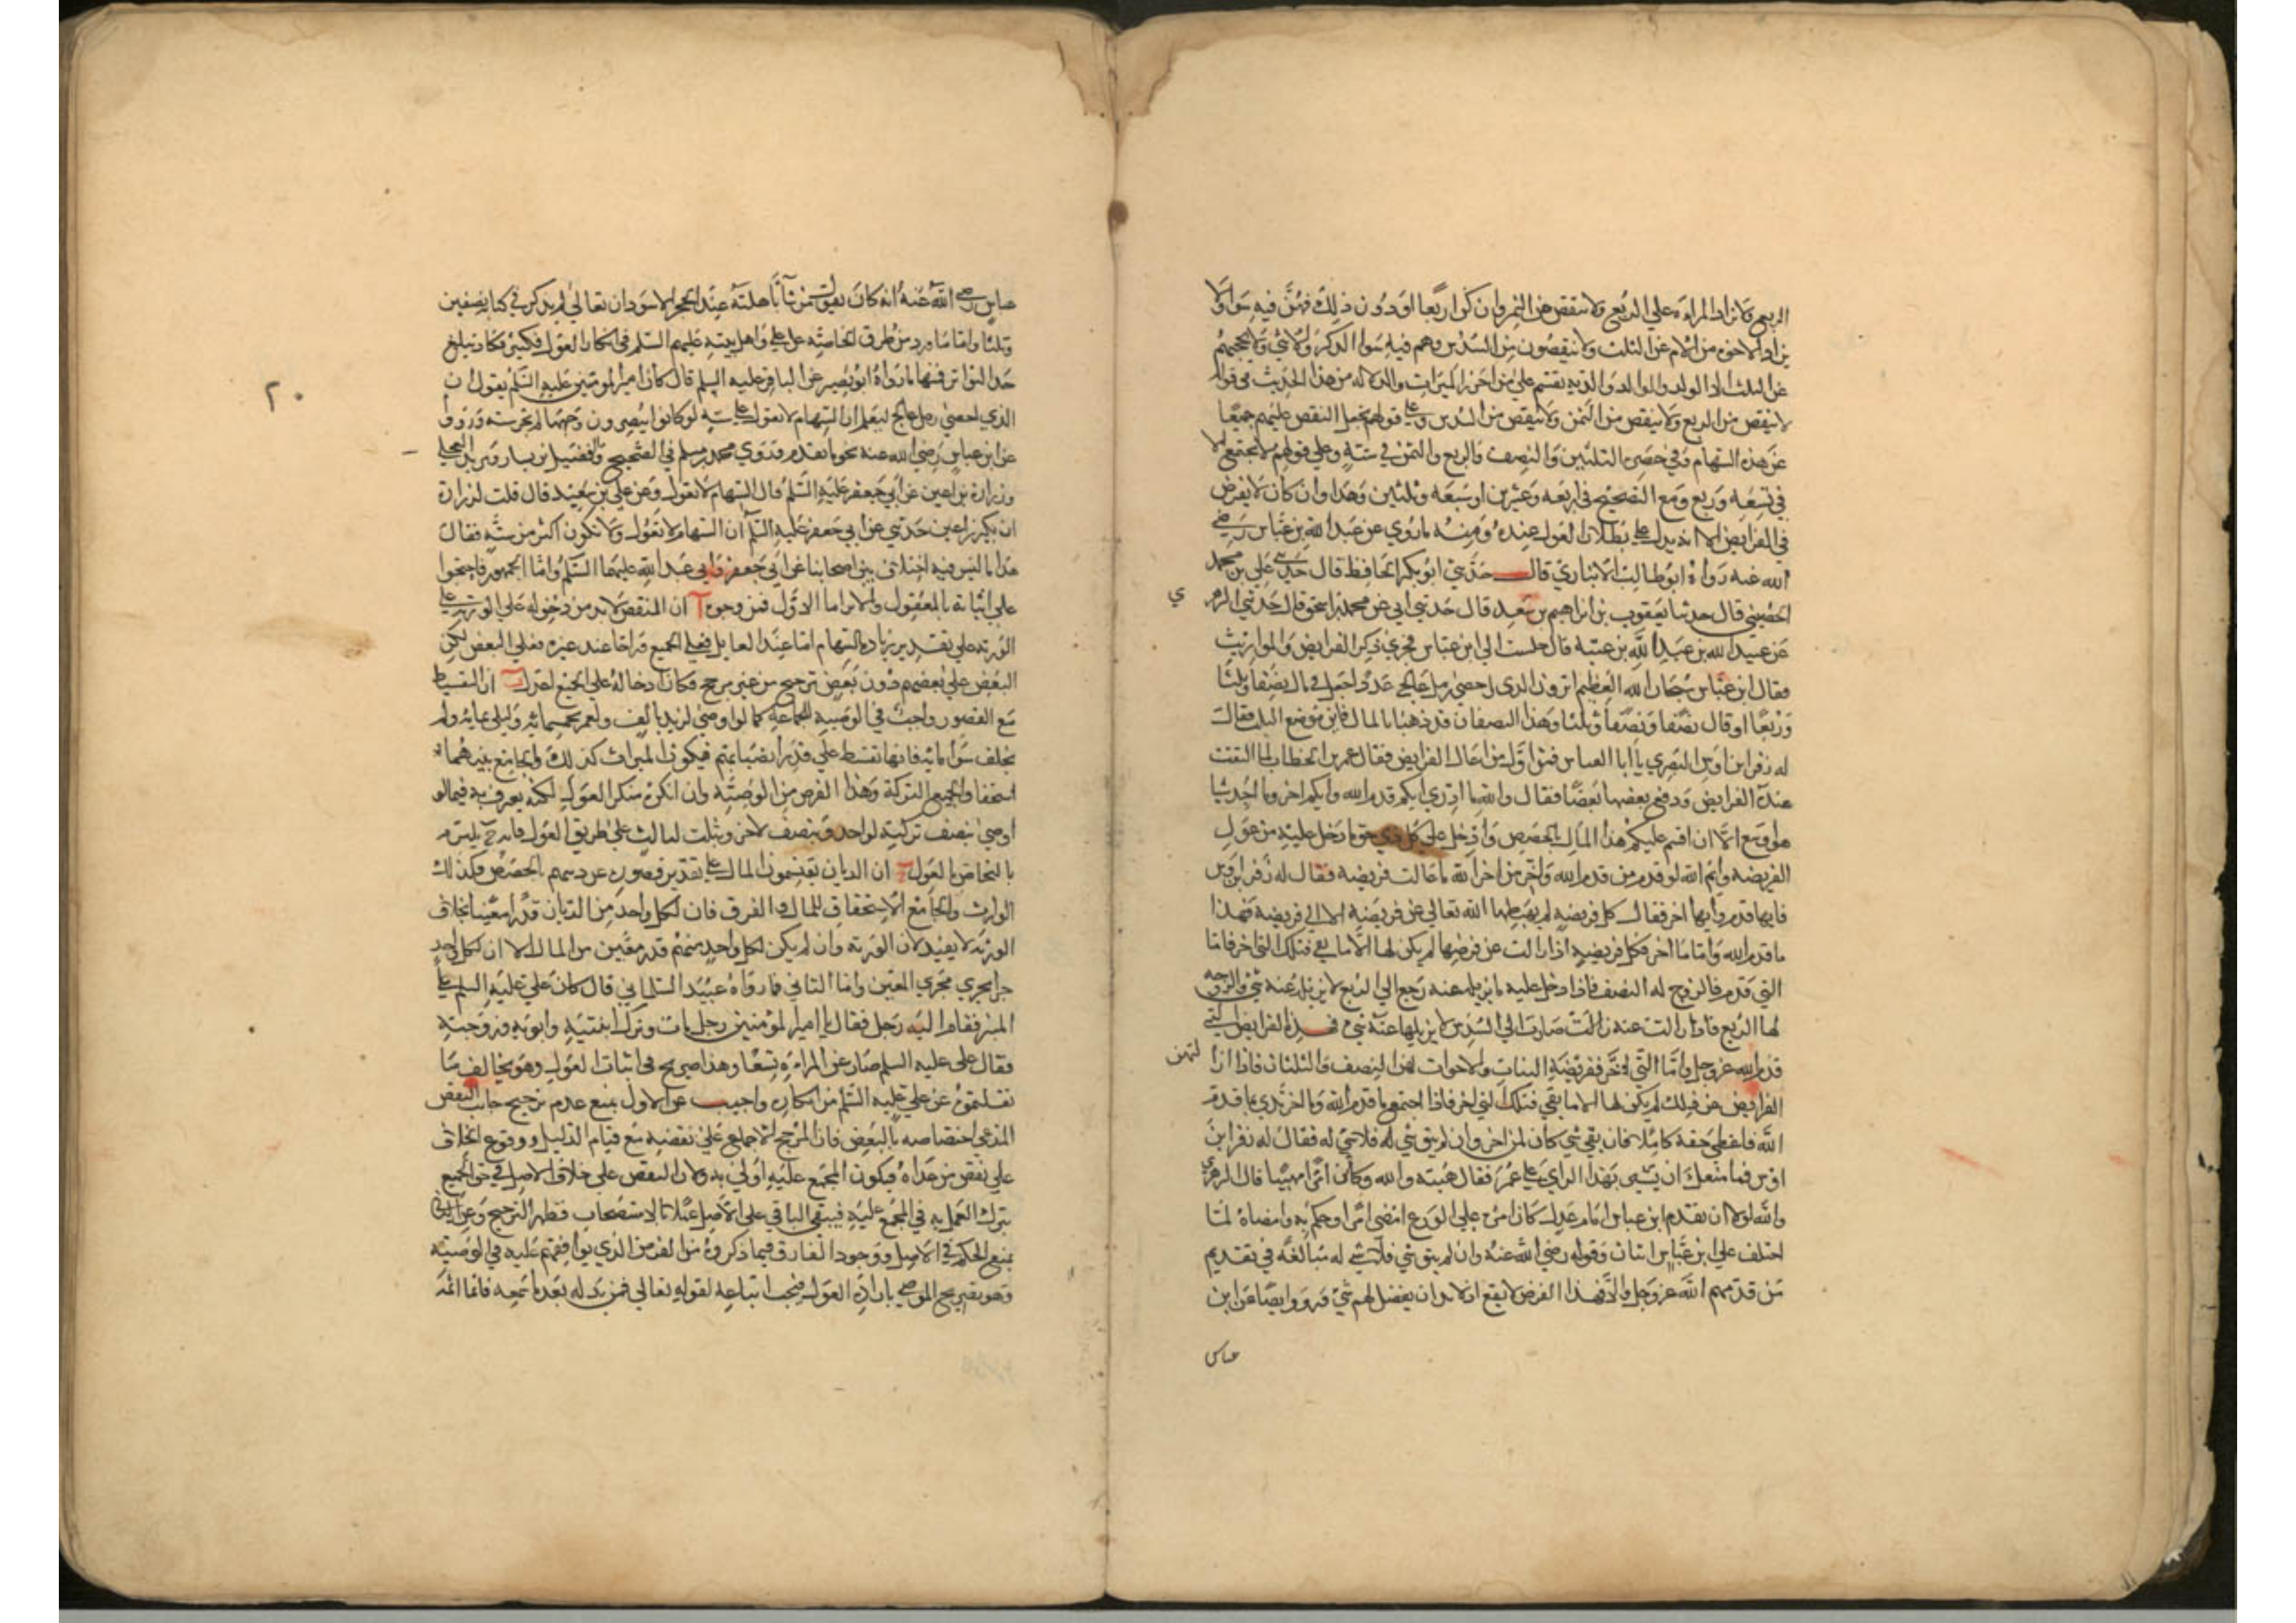 الربع ولا تزاد المراة علي الربع ولا تنقص من الثمن وان كن اربعا او دون ذلك فهن فيه سوا ولا
يزاد الاخوة من الام عن الثلث ولا ينقصون من السدس وهم فيه سوا الذكر والانثي ولا يحجبهم
عن الثلث الا الولد والوالد والدية تقسم علي من احرز الميراث والدلالة من هذا الحديث في قوله
لا ينقص من الربع ولا ينقص من الثمن ولا ينقص من السدس وعلي قولهم يدخل النقص عليهم جميعا
عن هذه السهام وفي حصره الثلثين والنصف والربع والثمن في ستة وعلي قولهم لا يجتمع الا
في تسعة وربع ومع التصحيح في اربعة وعشرين او سبعة وثلثين وهذا وان كان لا يفرض
في الفرايض الا انه يدل علي بطلان العول عنده ومنه ما روي عن عبد الله بن عباس رضي
الله عنه رواه ابو طالب الانباري قال حدثني ابو بكر الحافظ قال حدثني علي بن محمد
الحصيني قال حدثنا يعقوب بن ابراهيم بن سعد قال حدثني ابي عن محمد بن اسحق قال حدثني الزهري
عن عبيد الله بن عبد الله بن عتبة قال جلست الي ابن عباس فجري ذكر الفرايض والمواريث
فقال ابن عباس سبحان الله العظيم اترون الذي احصي رمل عالج عددا جعل في مال نصفا وثلثا
وربعا او قال نصفا ونصفا وثلثا وهذان النصفان قد ذهبا بالمال فاين موضع الثلث فقال
له زفر ابن اوس البصري يا ابا العباس فمن اول من اعال الفرايض فقال عمر بن الخطاب لما التفت
عنده الفرايض ودفع بعضها بعضا فقال والله ما ادري ايكم قدم الله وايكم اخر وما اجد شيا
هو اوسع الا ان اقسم عليكم هذا المال بالحصص وادخل علي كل ذي حق ما دخل عليه من عول
الفريضة وايم الله لو قدم من قدم الله واخر من اخر الله ما عالت فريضة فقال له زفر ابن اوس
فايها قدم وايها اخر فقال كل فريضة لم يهبطها الله تعالي عن فريضة الا الي فريضة فهذا
ما قدم الله واما ما اخر فكل فريضة اذا زالت عن فرضها لم يكن لها الا ما بقي فتلك التي اخر فاما
التي قدم فالزوج له النصف فاذا دخل عليه ما يزيله عنه رجع الي الربع لا يزيله عنه شي والزوجة
لها الربع فاذا زالت عنه زالت صارت الي السدس لا يزيلها عنه شي فهذه الفرايض التي
قدم الله عز وجل واما التي اخر ففريضة البنات والاخوات لهن النصف والثلثان فاذا ازالتهن
الفرايض عن ذلك لم يكن لها الا ما بقي فتلك التي اخر فاذا اجتمع ما قدم الله وما اخر بدي بما قدم
الله فاعطي حقه كاملا فان بقي شي كان لمن اخر وان لم يبق شي له فلا شي له فقال له زفر ابن
اوس فما منعك ان تشير بهذا الراي علي عمر فقال هبته والله وكان امرا مهيبا قال الزهري
والله لولا ان تقدم ابن عباس امام عدل كان امره علي الورع امضي امرا وحكم به وامضاه لما
اختلف علي ابن عباس اثنان وقوله رضي الله عنه وان لم يبق شي فلا شي له مبالغة في تقديم
من قدمهم الله عز وجل والا فهذا الفرض لا يقع اذ لا بد ان يفضل لهم شي ورووا ايضا عن ابن
عباس
عباس رضي الله عنه انه كان يقول من شا باهلته عند الحجر الاسود ان تعالي لم يذكر في كتابه نصفين
وثلثا واما ما ورد من طرق الخاصة عن علي واهل بيته عليهم السلم في انكار العول فكثير فكاد تبلغ
حد التواتر فمنها ما رواه ابو بصير عن الباقر عليه السلم قال كان امير المومنين عليه السلم يقول ان
الذي احصي رمل عالج ليعلم ان السهام لا تعول علي ستة لو كانوا يبصرون وجهها لم تجز ستة ورووا
عن ابن عباس رضي الله عنه نحو ما تقدم وروي محمد بن مسلم في الصحيح والفضيل بن يسار وبريد العجلي
وزرارة بن اعين عن ابي جعفر عليه السلم قال السهام لا تعول وعن علي بن سعيد قال قلت لزرارة
ان بكير بن اعين حدثني عن ابي جعفر عليه السلم ان السهام لا تعول ولا تكون اكثر من ستة فقال
هذا ما ليس فيه اختلاف بين اصحابنا عن ابي جعفر وابي عبد الله عليهما السلم واما الجمهور فاحتجوا
علي اثباته بالمعقول والاثر اما الاول فمن وجوه آ ان النقص لا بد من دخوله علي الورثة علي
الورثة علي تقدير زيادة السهام اما عند العايل فعلي الجميع واما عند غيره فعلي البعض لكن
البعض علي بعضهم دون بعض ترجيح من غير مرجح فكان ادخاله علي الجميع اعدل ب ان التقسيط
مع القصور واجب في الوصية للجماعة كما لو اوصي لزيد بالف ولعمر بخمسماية ولبلي بماية ولم
يخلف سوي ماية فانها تقسط علي قدر انصبايهم فيكون الميراث كذلك والجامع بينهما
استحقاق الجميع التركة وهذا الفرض من الوصية وان انكره منكر العول لكنه يعترف به فيما لو
اوصي بنصف تركته لواحد وبنصف لاخر وبثلث لثالث علي طريق العول فانه ح يلتزم
بالتحاص بالعول ج ان الديان يقتسمون المال علي تقدير قصوره عن دينهم بالحصص فكذلك
الوارث والجامع الاستحقاق للمال والفرق فان لكل واحد من الديان قدرا معينا بخلاف
الورثة لا يفيد لان الورثة وان لم يكن لكل واحد منهم قدر معين من المال الا ان لكل واحد
جزا يجري مجري المعين واما الثاني فما رواه عبيد السلماني قال كان علي عليه السلم علي
المنبر فقام اليه رجل فقال يا امير المومنين رجل مات وترك ابنتيه وابويه وزوجته
فقال علي عليه السلم صار ثمن المراة تسعا وهذا صريح في اثبات العول وهو يخالف ما
نقلتموه عن علي عليه السلم من انكاره واجيب عن الاول بمنع عدم ترجيح جانب النقص
المدعي اختصاصه بالبعض فان المرجح الاجماع علي نقضيه مع قيام الدليل ووقوع الخلاف
علي نقص من عداه فيكون المجمع عليه اولي به ولان النقص علي خلاف الاصل في حق الجميع
ترك العمل به في المجمع عليه فيبقي الباقي علي الاصل عملا بالاستصحاب فظهر الترجيح وعن الثاني
بمنع الحكم في الاصل ووجود الفارق فيما ذكروه من الفرض الذي يوافقهم عليه في الوصية
وهو تصريح الموصي بارادة العول فيجب اتباعه لقوله تعالي فمن بدله بعد ما سمعه فانما اثمه
٢٠